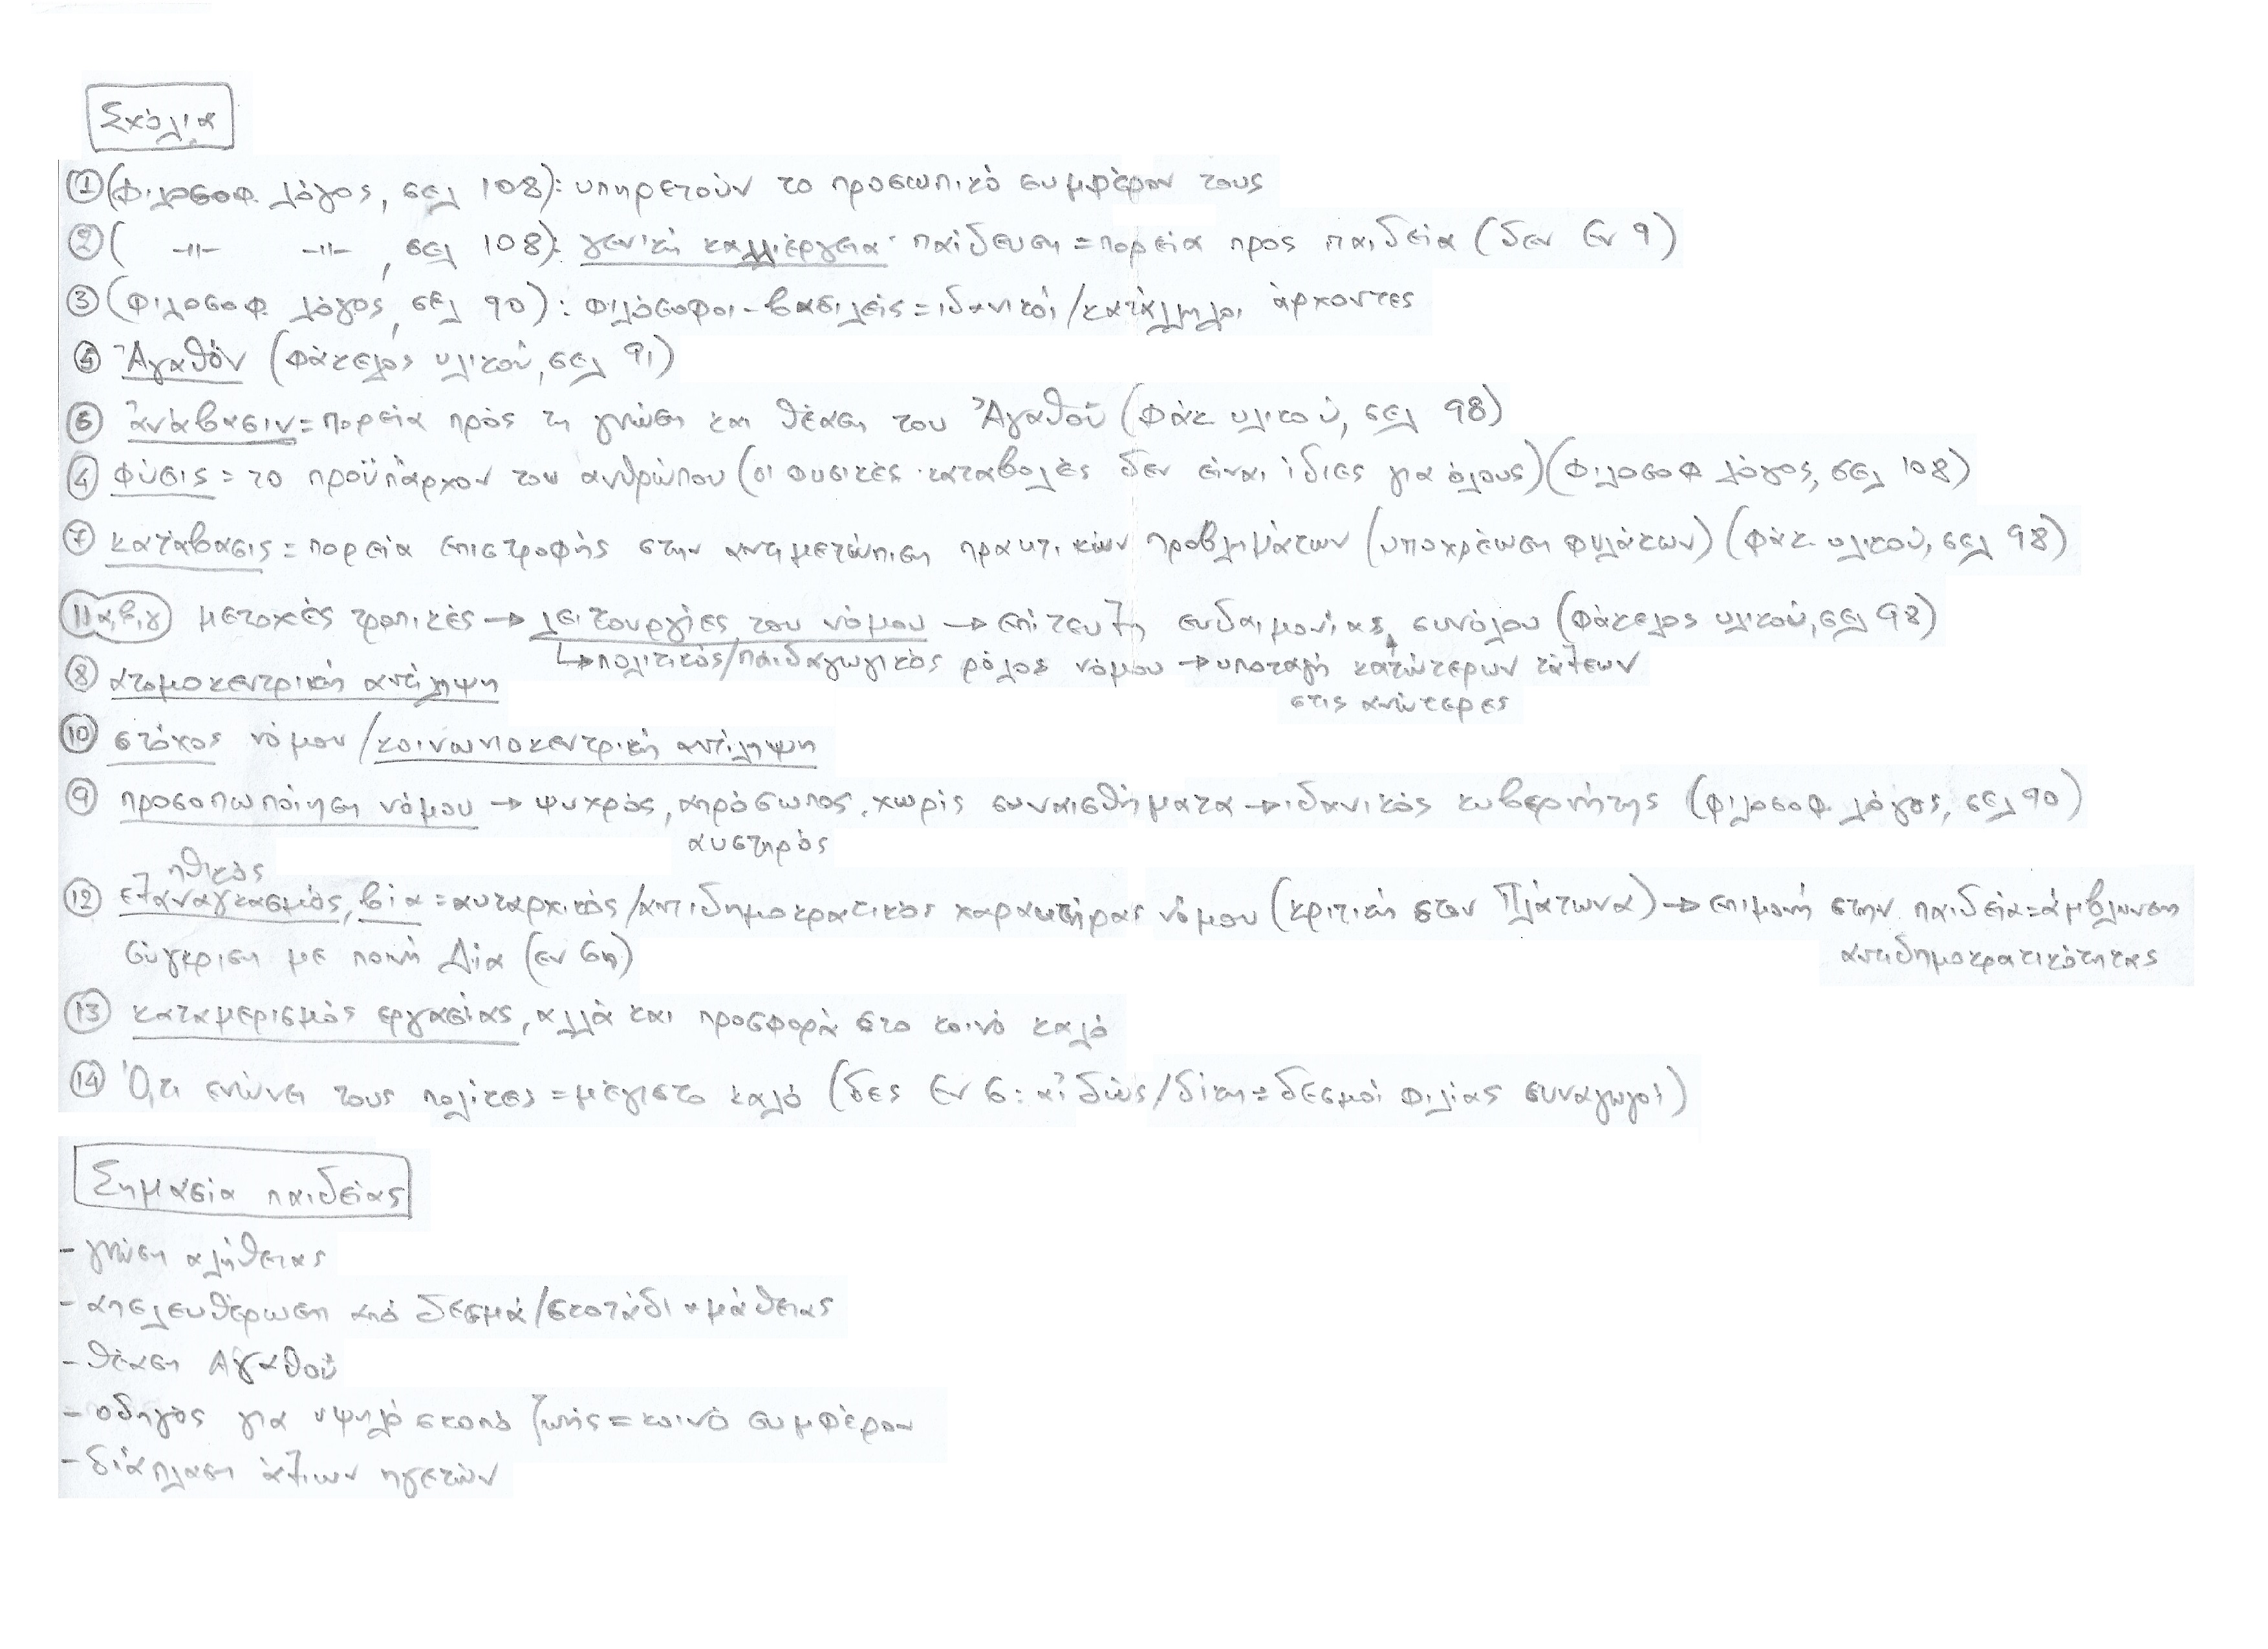 Σχόλια
① (Φιλοσοφ. λόγος, σελ 108): υπηρετούν το προσωπικό συμφέρον τους
② ( -||- -||- , σελ 108): γενική καλλιέργεια· παίδευση = πορεία προς παιδεία (δεν εν 9)
③ (Φιλοσοφ. λόγος, σελ 90): φιλόσοφοι-βασιλείς = ιδανικοί/κατάλληλοι άρχοντες
⑤ Ἀγαθόν (Φάκελος υλικού, σελ 91)
⑥ ἀνάβασιν = πορεία πρός τη γνώση και θέαση του Ἀγαθοῦ (Φάκ υλικού, σελ 98)
④ φύσις = το προϋπάρχον του ανθρώπου (οι φυσικές καταβολές δεν είναι ίδιες για όλους) (Φιλοσοφ λόγος, σελ 108)
⑦ κατάβασις = πορεία επιστροφής στην αντιμετώπιση πρακτικών προβλημάτων (υποχρέωση φυλάκων) (Φάκ. υλικού, σελ 98)
11α,β,γ μετοχές τροπικές → λειτουργίες του νόμου → επίτευξη ευδαιμονίας συνόλου (Φάκελος υλικού, σελ 98)
↳ πολιτικός/παιδαγωγικός ρόλος νόμου → υποταγή κατώτερων τάξεων
στις ανώτερες
⑧ ατομοκεντρική αντίληψη
⑩ στόχος νόμου / κοινωνιοκεντρική αντίληψη
⑨ προσοπωποίηση νόμου → ψυχρός, απρόσωπος, χωρίς συναισθήματα → ιδανικός κυβερνήτης (Φιλοσοφ. λόγος, σελ 90)
αυστηρός
ηθικός
⑫ εξαναγκασμός, βία = αυταρχικός/αντιδημοκρατικός χαρακτήρας νόμου (κριτική στον Πλάτωνα) → επιμονή στην παιδεία = άμβλυνση
αντιδημοκρατικότητας
σύγκριση με ποινή Δία (εν 6η)
⑬ καταμερισμός εργασίας, αλλά και προσφορά στο κοινό καλό
⑭ Ό,τι ενώνει τους πολίτες = μέγιστο καλό (δες Εν 6: αἰδώς/δίκη = δεσμοί φιλίας συναγωγοί)
Σημασία παιδείας
- γνώση αλήθειας
- απελευθέρωση από δεσμά/σκοτάδι αμάθειας
- θέαση Αγαθού
- οδηγός για υψηλό σκοπό ζωής = κοινό συμφέρον
- διάπλαση άξιων ηγετών